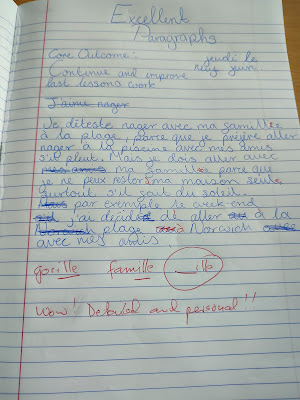 Excellent
Paragraphs
Core Outcome: jeudi le
Continue and improve juin
last lessons work
J'aime nager
Je déteste nager avec ma famille
à la plage, parce que je préfère aller
nager à la piscine avec mes amis
s'il pleut. Mais je dois aller avec
mes amis ma famille parce que
je ne peux rester ma maison seule
surtout s'il fait du soleil.
Mais par exemple le week-end
j'ai décidé de aller à la
plage Norwich
avec mes amis.
gorille famille ille
Wow! Detailed and personal!!